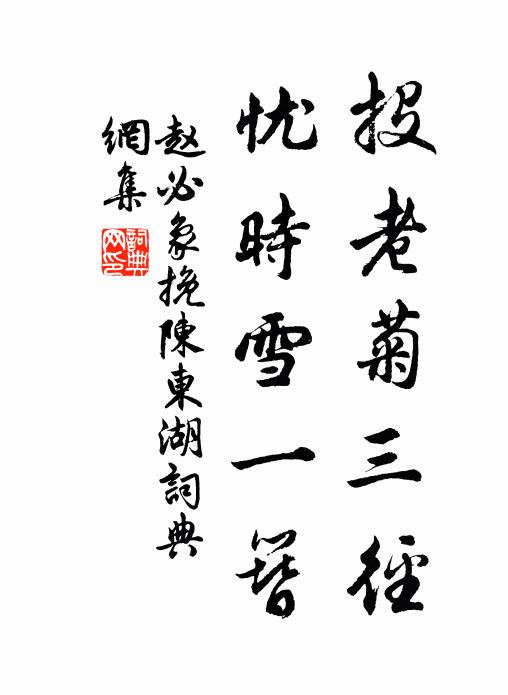 投老菊三徑
忧時雪一簪
赵必象挽陳東湖詞典
網集
詞典網印